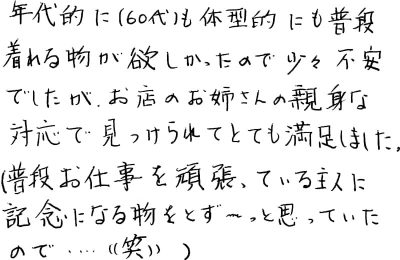 年代的に(60代)も体型的にも普段
着れる物が欲しかったので少々不安
でしたが、お店のお姉さんの親身な
対応で見つけられてとても満足しました。
(普段お仕事を頑張っている主人に
記念になる物をとず〜っと思っていた
ので‥‥((笑)) )